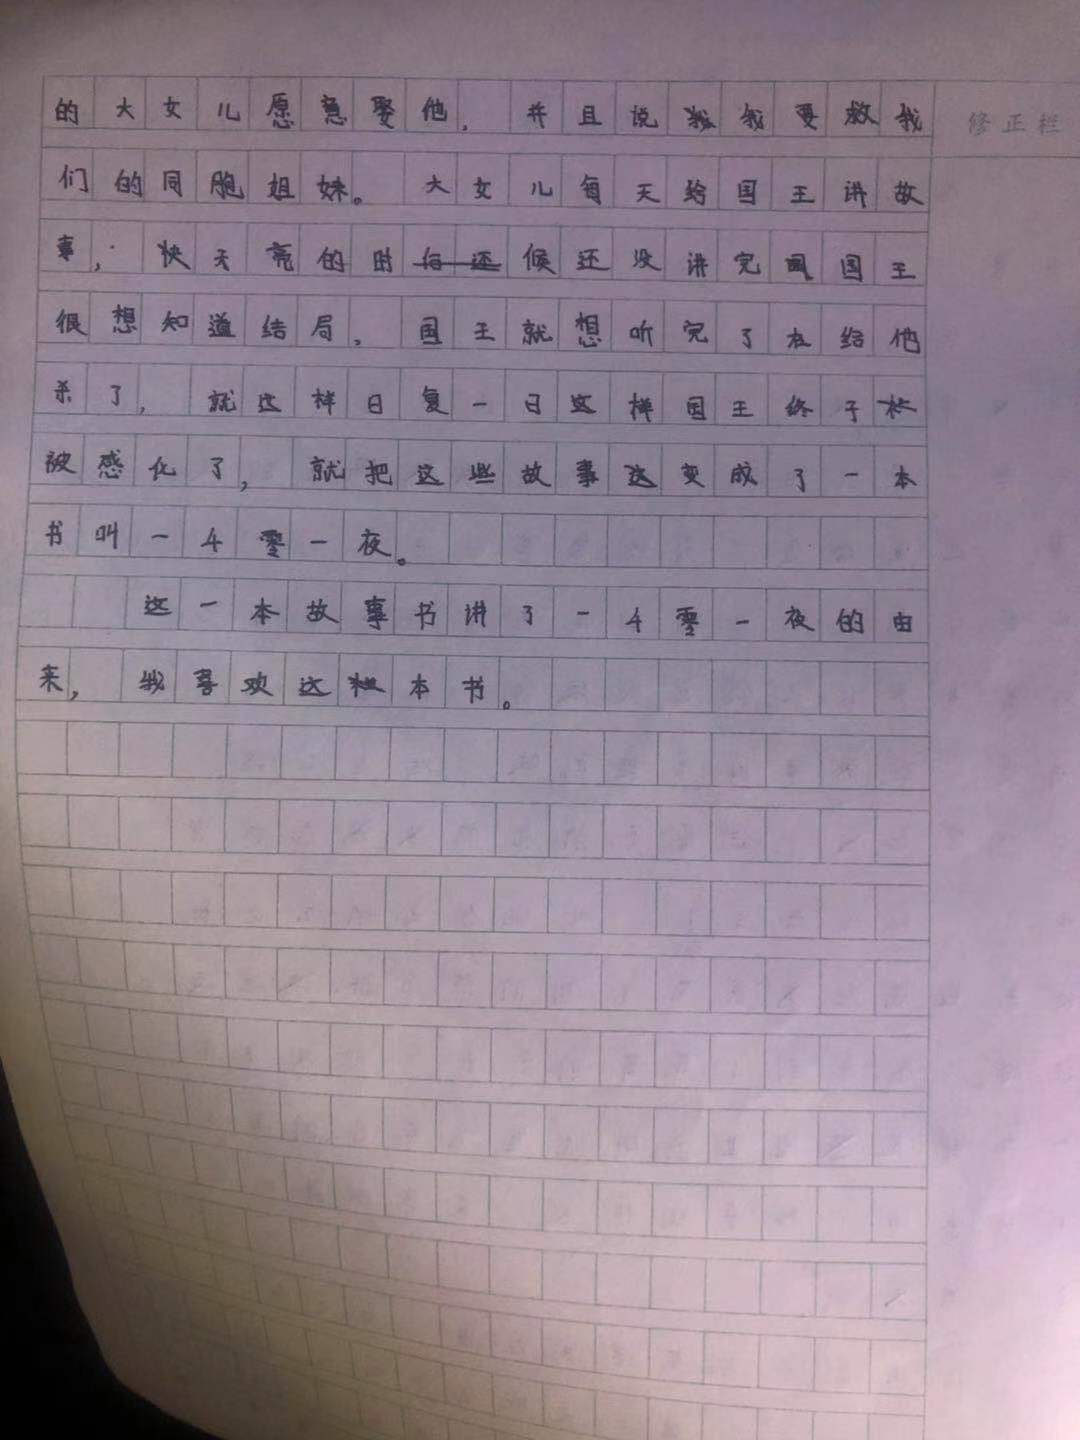 的大女儿愿意娶他，并且说我要救我
修正栏
们的同胞姐妹。大女儿每天给国王讲故
事，快天亮的时候还没讲完国王
很想知道结局，国王就想听完了在给他
杀了，就这样日复一日这样国王终于
被感化了，就把这些故事这变成了一本
书叫一千零一夜。
这一本故事书讲了一千零一夜的由
来，我喜欢这本书。